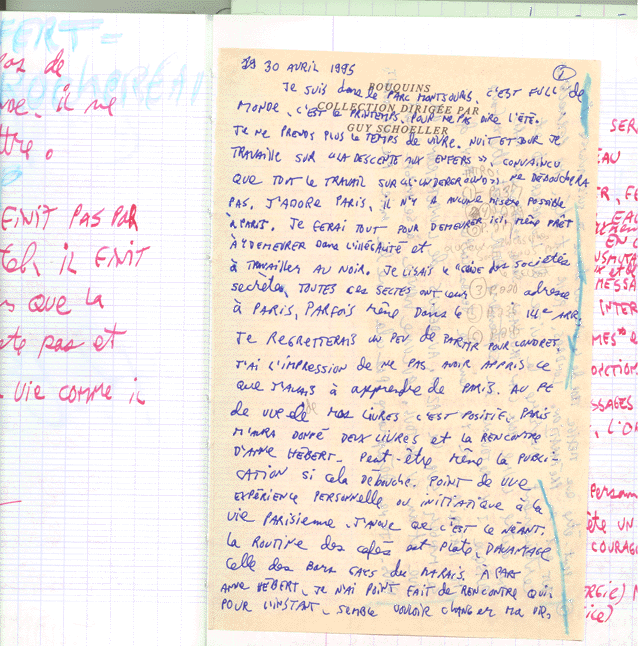 30 AVRIL 1995
1
BOUQUINS
COLLECTION DIRIGÉE PAR
GUY SCHOELLER
JE SUIS dans le PARC MONTSOURIS. C'EST FULL de
MONDE. C'EST LE PRINTEMPS. POUR NE PAS DIRE L'ÉTÉ.
JE NE PRENDS PLUS LE TEMPS DE VIVRE. NUIT ET JOUR JE
TRAVAILLE SUR « LA DESCENTE AUX ENFERS », CONVAINCU
QUE TOUT LE TRAVAIL SUR « L'UNDERGROUND » NE DÉBOUCHERA
PAS. J'ADORE PARIS, IL N'Y A AUCUNE MISÈRE POSSIBLE
À PARIS. JE FERAI TOUT POUR DEMEURER ici, même PRÊT
À Y DEMEURER DANS L'ILLÉGALITÉ et
à TRAVAILLER AU NOIR. JE LISAIS le guide des sociétés
secrètes, TOUTES CES SECTES ONT leur adresse
à PARIS, PARFOIS même DANS le IIIe ARR.
JE REGRETTERAIS UN PEU de PARTIR POUR LONDRES
J'AI L'IMPRESSION DE NE PAS AVOIR APPRIS CE
QUE J'AVAIS à apprendre de PARIS. AU PT
de VUE de MES LIVRES C'EST POSITIF. PARIS
M'AURA DONNÉ DEUX LIVRES et la RENCONTRE
D'ANNE HÉBERT. Peut-être même la PUBLI-
CATION si cela DÉBOUCHE. POINT de VUE
EXPÉRIENCE PERSONNELLE OU INITIATIQUE à la
VIE PARISIENNE, J'AVOUE QUE C'EST LE NÉANT.
la ROUTINE des cafés est PLATE, DAVANTAGE
celle des BARS GAYS du MARAIS. À PART
ANNE HÉBERT, JE N'AI POINT FAIT de RENCONTRE QUI,
POUR L'INSTANT, SEMBLE VOULOIR CHANGER MA VIE.
FERT =
pas de
il ne
FINIT PAS PAR
il FINIT
que la
pas et
VIE comme il
SER
EAU
EN C
MESSA
INTER
SSAGES
Person
UN
COURAG